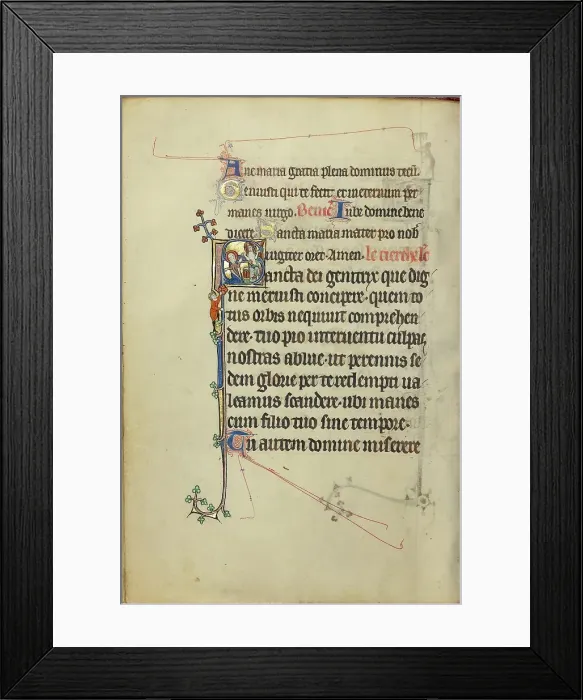 Ave maria gratia plena dominus tecū.
Genuisti qui te fecit et ineternum per
manes uirgo. Benic Iube domine bene
dicere. Sancta maria mater pro nob
iugiter oret. Amen. le tierche le
Sancta dei genitrix que dig
ne meruisti concipere. quem to
tus orbis nequiuit comprehen
dere. tuo pio interuentu culpas
nostras ablue. ut perennis se
dem glorie per te redempti ua
leamus scandere. ubi manes
cum filio tuo sine tempore.
Tu autem domine miserere